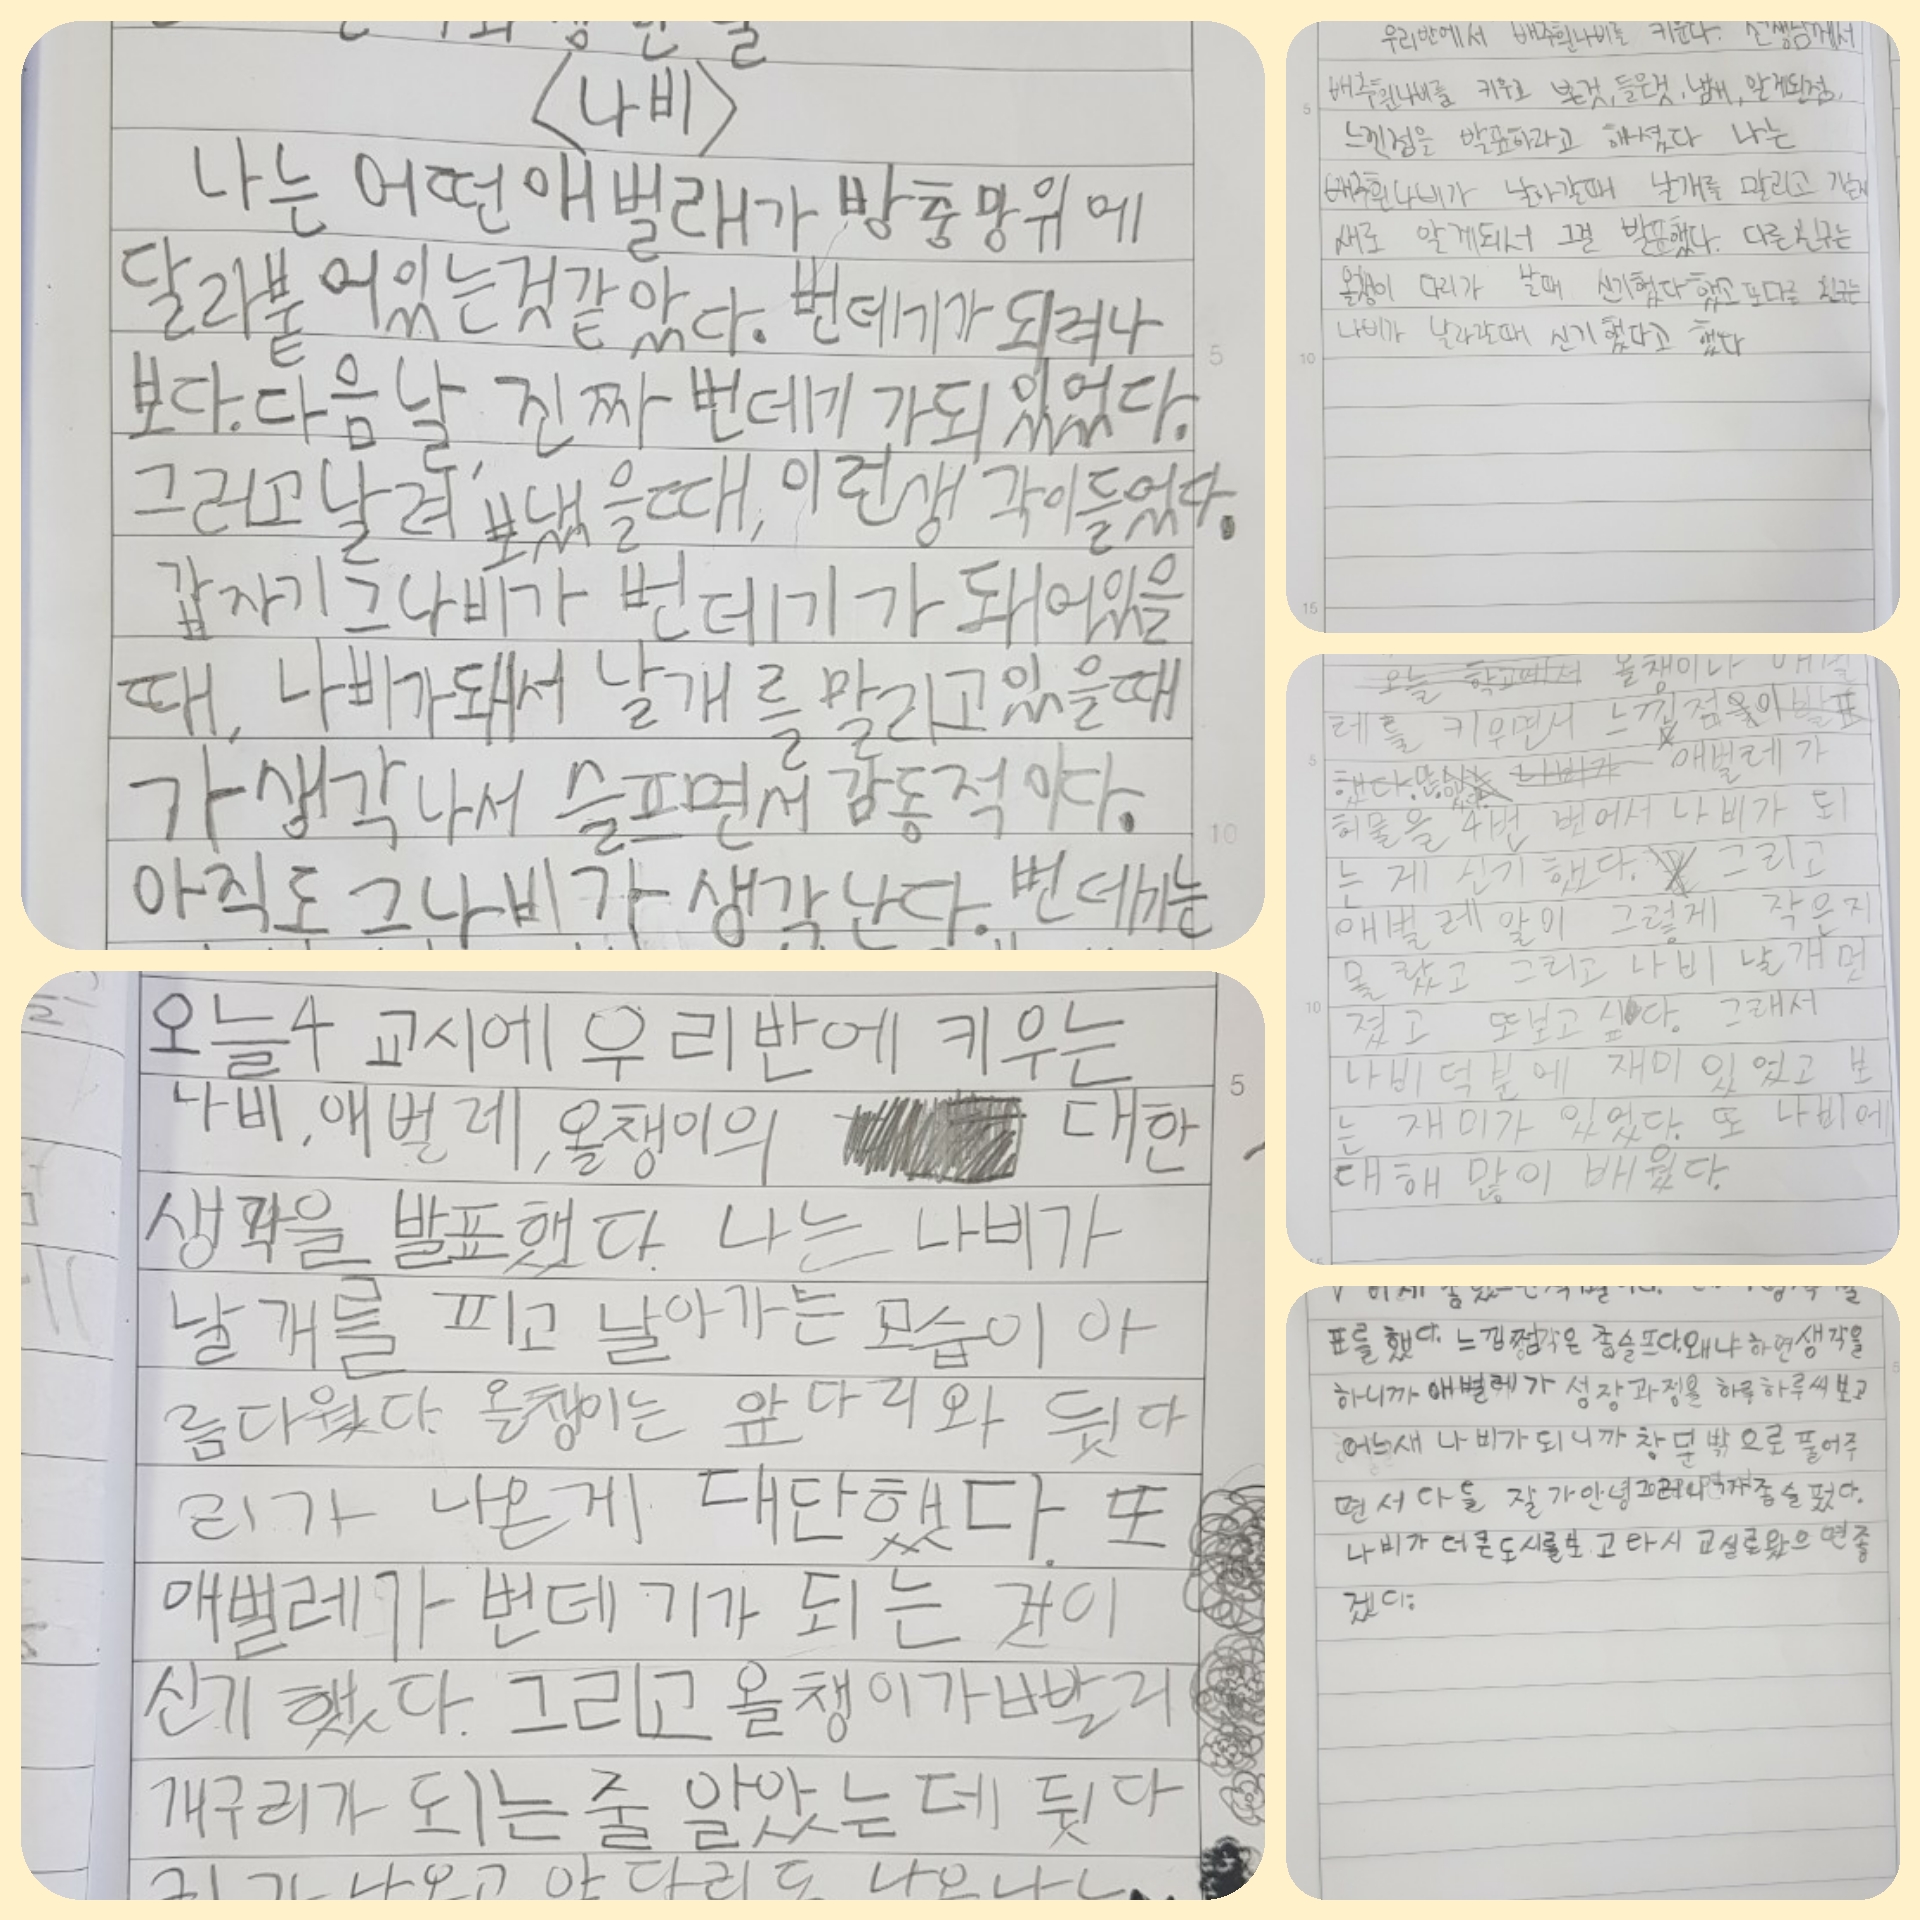 〈나비〉
나는 어떤 애벌래가 방충망위에
달라붙어있는것같았다. 번데기가 되려나
보다. 다음날, 진짜 번데기가되있었다.
그러고 날려보냈을때, 이런생각이들었다.
갑자기 그나비가 번데기가 돼어있을
때, 나비가돼서 날개를 말리고있을때
가 생각나서 슬프면서 감동적이다.
아직도 그나비가 생각난다. 번데기는
오늘4교시에 우리반에 키우는
나비, 애벌레, 올챙이의 대한
생각을 발표했다. 나는 나비가
날개를 피고 날아가는 모습이 아
름다웠다. 올챙이는 앞다리와 뒷다
리가 나온게 대단했다. 또
애벌레가 번데기가 되는 것이
신기했다. 그리고 올챙이가 빨리
개구리가 되는줄 알았는데 뒷다
우리반에서 배추흰나비를 키운다. 선생님께서
배추흰나비를 키우고 본것, 들은것, 냄새, 알게된점,
느낀점을 발표하라고 해셨다 나는
배추흰나비가 날아갈때 날개를 말리고
새로 알게되서 그걸 발표했다. 다른친구는
올챙이 다리가 날때 신기했다했고 또다른 친구는
나비가 날라갈때 신기했다고 했다
오늘 학교에서 올챙이나 애벌
레를 키우면서 느낌점을 발표
했다. 애벌레가
허물을 4번 벗어서 나비가 되
는게 신기했다. 그리고
애벌레알이 그렇게 작은지
몰랐고 그리고 나비 날개 멋
졌고 또보고싶다. 그래서
나비덕분에 재미있었고 보
는 재미가 있었다. 또 나비에
대해 많이 배웠다.
표를했다. 좀슬프다. 왜냐하면생각을
하니까 애벌레가 성장과정을 하루하루씩보고
어느새 나비가되니까 창문밖으로 풀어주
면서 다들 잘가안녕 좀슬펐다.
나비가 더큰도시를보고 다시 교실로왔으면좋
겠다.